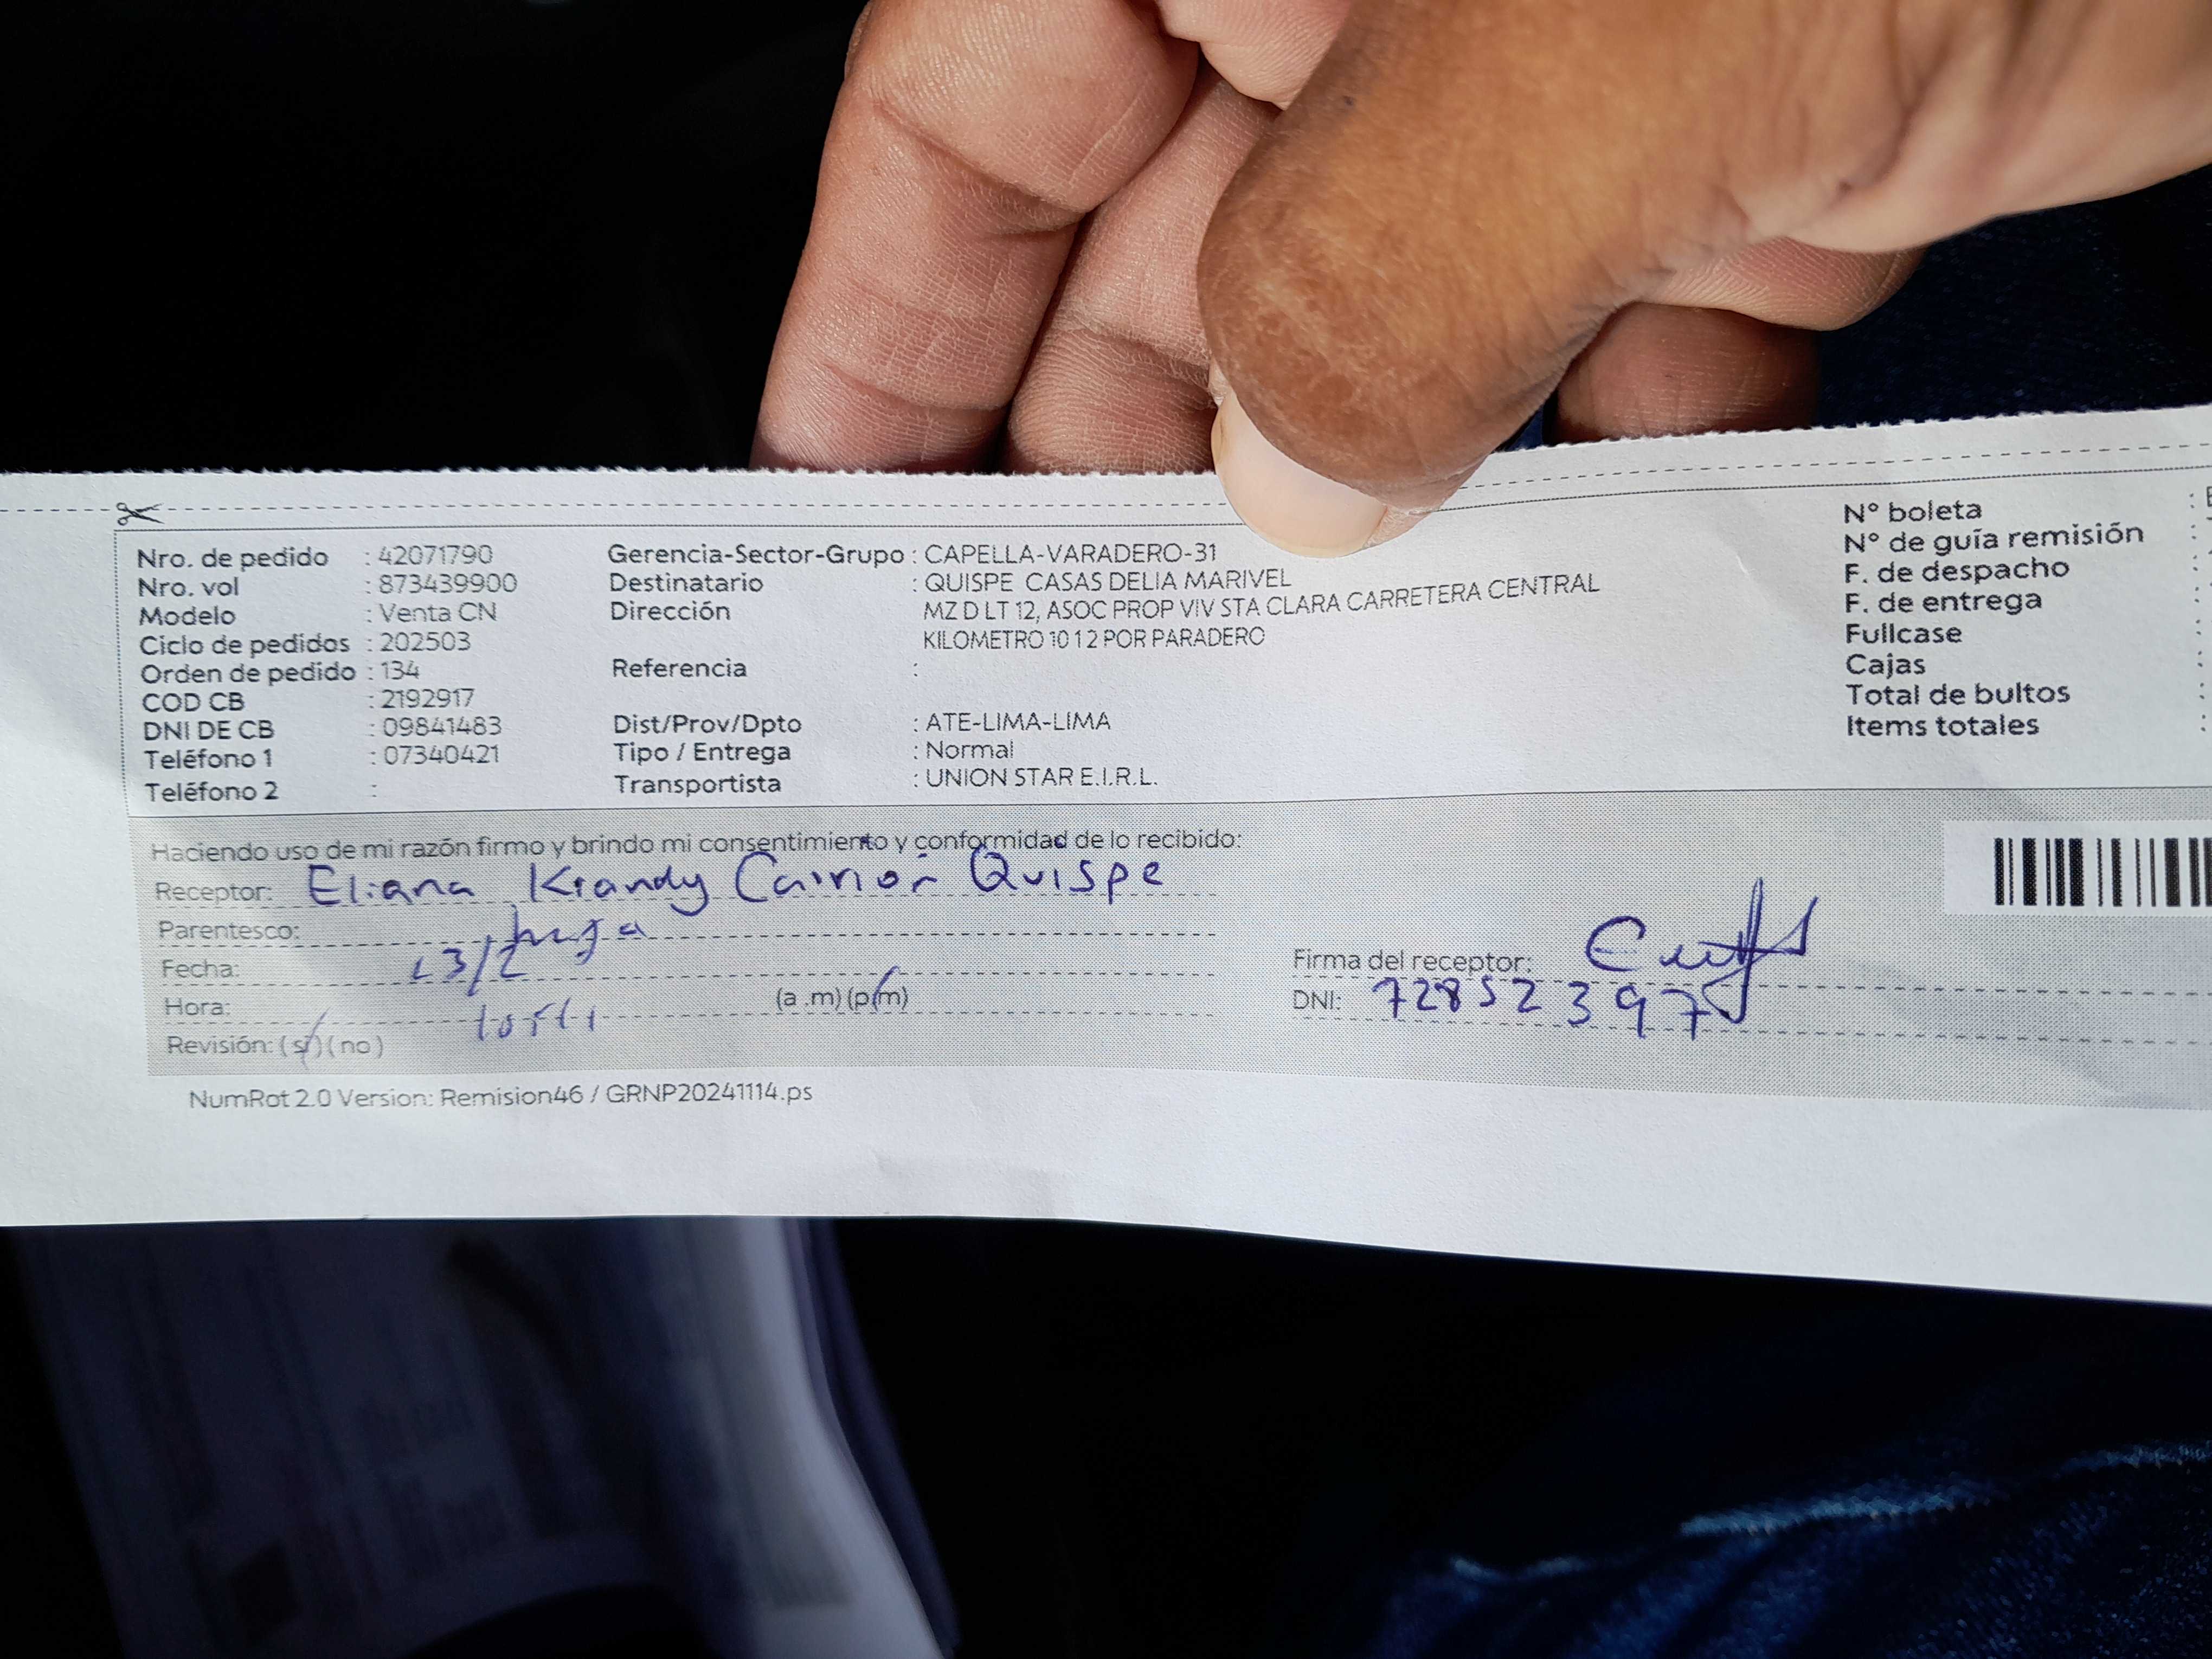 Nro. de pedido : 42071790
Nro. vol : 873439900
Modelo : Venta CN
Ciclo de pedidos : 202503
Orden de pedido : 134
COD CB : 2192917
DNI DE CB : 09841483
Teléfono 1 : 07340421
Teléfono 2 :
Gerencia-Sector-Grupo : CAPELLA-VARADERO-31
Destinatario : QUISPE CASAS DELIA MARIVEL
Dirección : MZ D LT 12, ASOC PROP VIV STA CLARA CARRETERA CENTRAL
KILOMETRO 10 1 2 POR PARADERO
Referencia :
Dist/Prov/Dpto : ATE-LIMA-LIMA
Tipo / Entrega : Normal
Transportista : UNION STAR E.I.R.L.
N° boleta :
N° de guía remisión :
F. de despacho :
F. de entrega :
Fullcase :
Cajas :
Total de bultos :
Items totales :
Haciendo uso de mi razón firmo y brindo mi consentimiento y conformidad de lo recibido:
Receptor: Eliana Kiandy Carrión Quispe
Parentesco: hija
Fecha: 13/2
Hora: (a .m) (p.m)
Revisión: ( si ) ( no )
Firma del receptor:
DNI: 72852397
NumRot 2.0 Version: Remision46 / GRNP20241114.ps